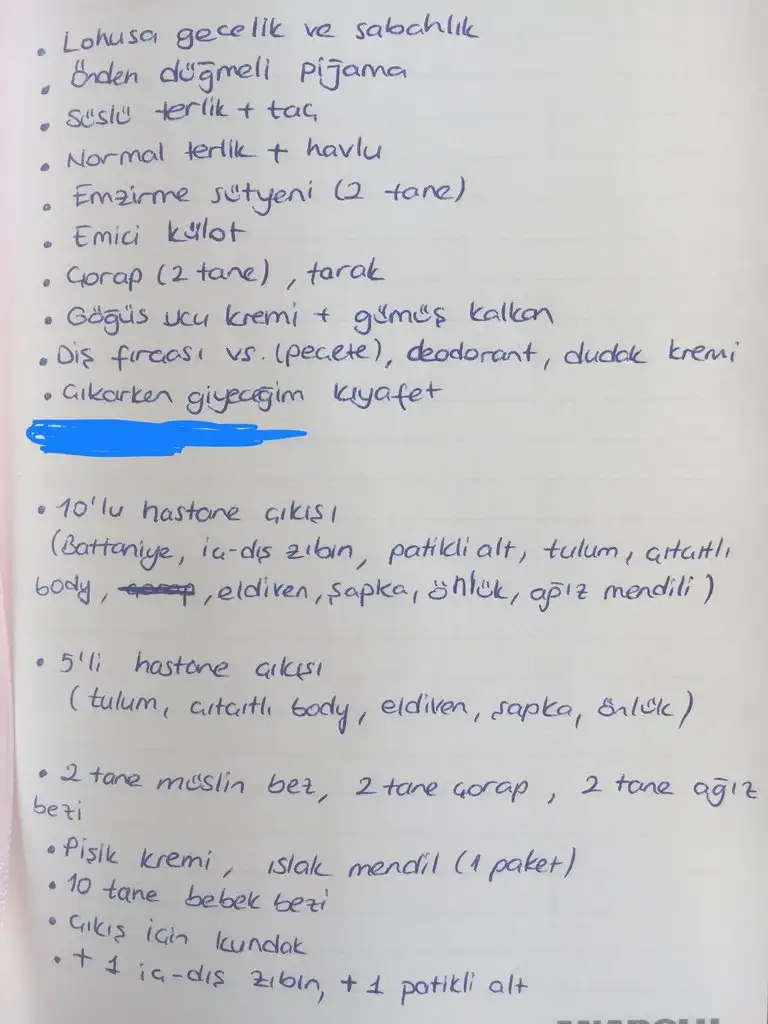 • Lohusa gecelik ve sabahlık
• Önden düğmeli pijama
• Süslü terlik + taç
• Normal terlik + havlu
• Emzirme sütyeni (2 tane)
• Emici külot
• Çorap (2 tane), tarak
• Göğüs ucu kremi + gümüş kalkan
• Diş fırçası vs. (peçete), deodorant, dudak kremi
• Çıkarken giyeceğim kıyafet
• 10'lu hastane çıkışı
(Battaniye, iç-dış zıbın, patikli alt, tulum, çıtçıtlı
body, , eldiven, şapka, önlük, ağız mendili)
• 5'li hastane çıkışı
(tulum, çıtçıtlı body, eldiven, şapka, önlük)
• 2 tane müslin bez, 2 tane çorap, 2 tane ağız
bezi
• Pişik kremi, ıslak mendil (1 paket)
• 10 tane bebek bezi
• Çıkış için kundak
• + 1 iç-dış zıbın, + 1 patikli alt